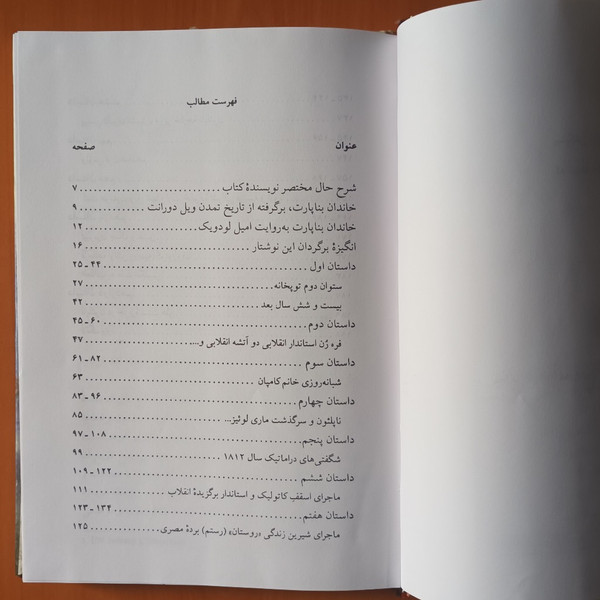 فهرست مطالب
عنوان صفحه
شرح حال مختصر نویسندهٔ کتاب .............................. ۷
خاندان بناپارت، برگرفته از تاریخ تمدن ویل دورانت .............. ۹
خاندان بناپارت به‌روایت امیل لودویک ........................ ۱۲
انگیزهٔ برگردان این نوشتار .............................. ۱۶
داستان اول .............................. ۲۵ ـ ۴۴
ستوان دوم توپخانه .............................. ۲۷
بیست و شش سال بعد .............................. ۴۲
داستان دوم .............................. ۴۵ ـ ۶۰
فره ژن استاندار انقلابی دو آتشه انقلابی و... .................... ۴۷
داستان سوم .............................. ۶۱ ـ ۸۲
شبانه‌روزی خانم کامپان .............................. ۶۳
داستان چهارم .............................. ۸۳ ـ ۹۶
ناپلئون و سرگذشت ماری لوئیز... .............................. ۸۵
داستان پنجم .............................. ۹۷ ـ ۱۰۸
شگفتی‌های دراماتیک سال ۱۸۱۲ .............................. ۹۹
داستان ششم .............................. ۱۰۹ ـ ۱۲۲
ماجرای اسقف کاتولیک و استاندار برگزیدهٔ انقلاب .............. ۱۱۱
داستان هفتم .............................. ۱۲۳ ـ ۱۳۴
ماجرای شیرین زندگی «روستان» (رستم) بردهٔ مصری .............. ۱۲۵